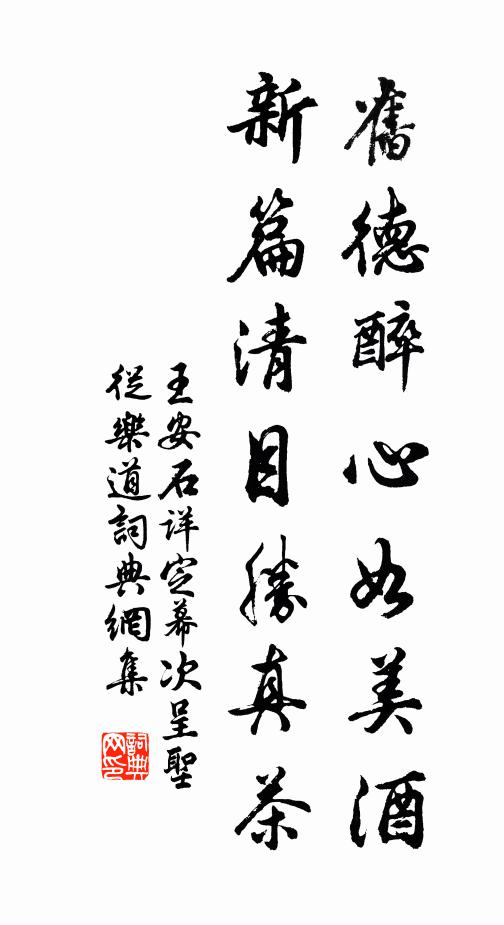 舊德醉心如美酒
新篇清目勝真茶
王安石详定幕次呈聖
從樂道詞典網集
詞典
网印